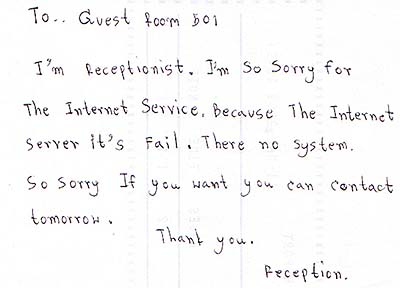 To.. Guest Room 501
I'm Receptionist. I'm So Sorry for
The Internet Service. Because The Internet
Server it's Fail. There no system.
So Sorry If you want you can contact
tomorrow.
Thank you.
Reception.